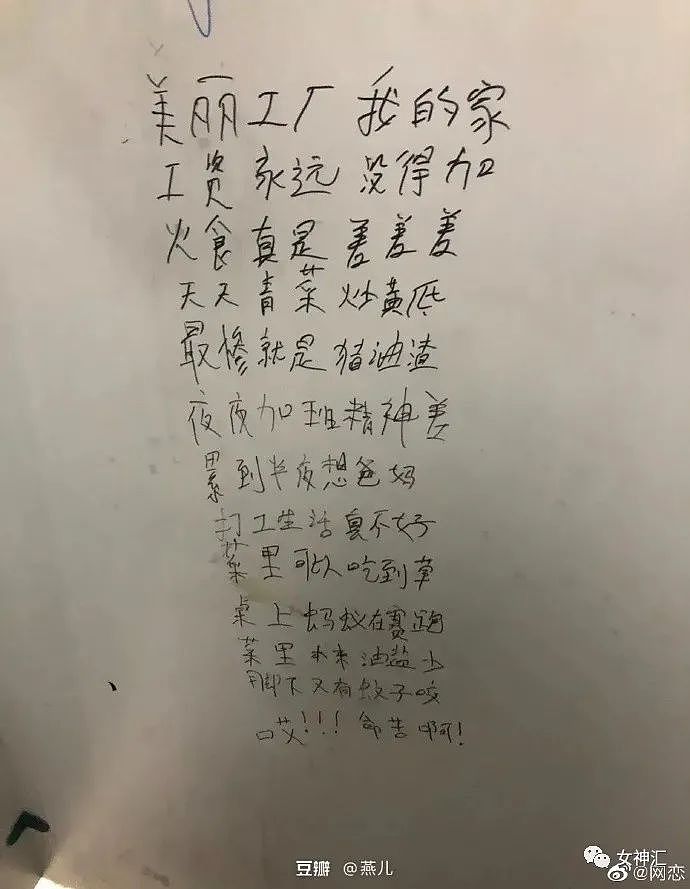 美丽工厂我的家
工资永远没得加
火食真是差差差
天天青菜炒黄瓜
最惨就是猪油渣
夜夜加班精神差
累到半夜想爸妈
打工生活真不好
菜里可以吃到草
桌上蚂蚁在赛跑
菜里本来油盐少
脚下又有蚊子咬
哎!!!命苦啊!
豆瓣 @燕儿
女神汇
@网恋